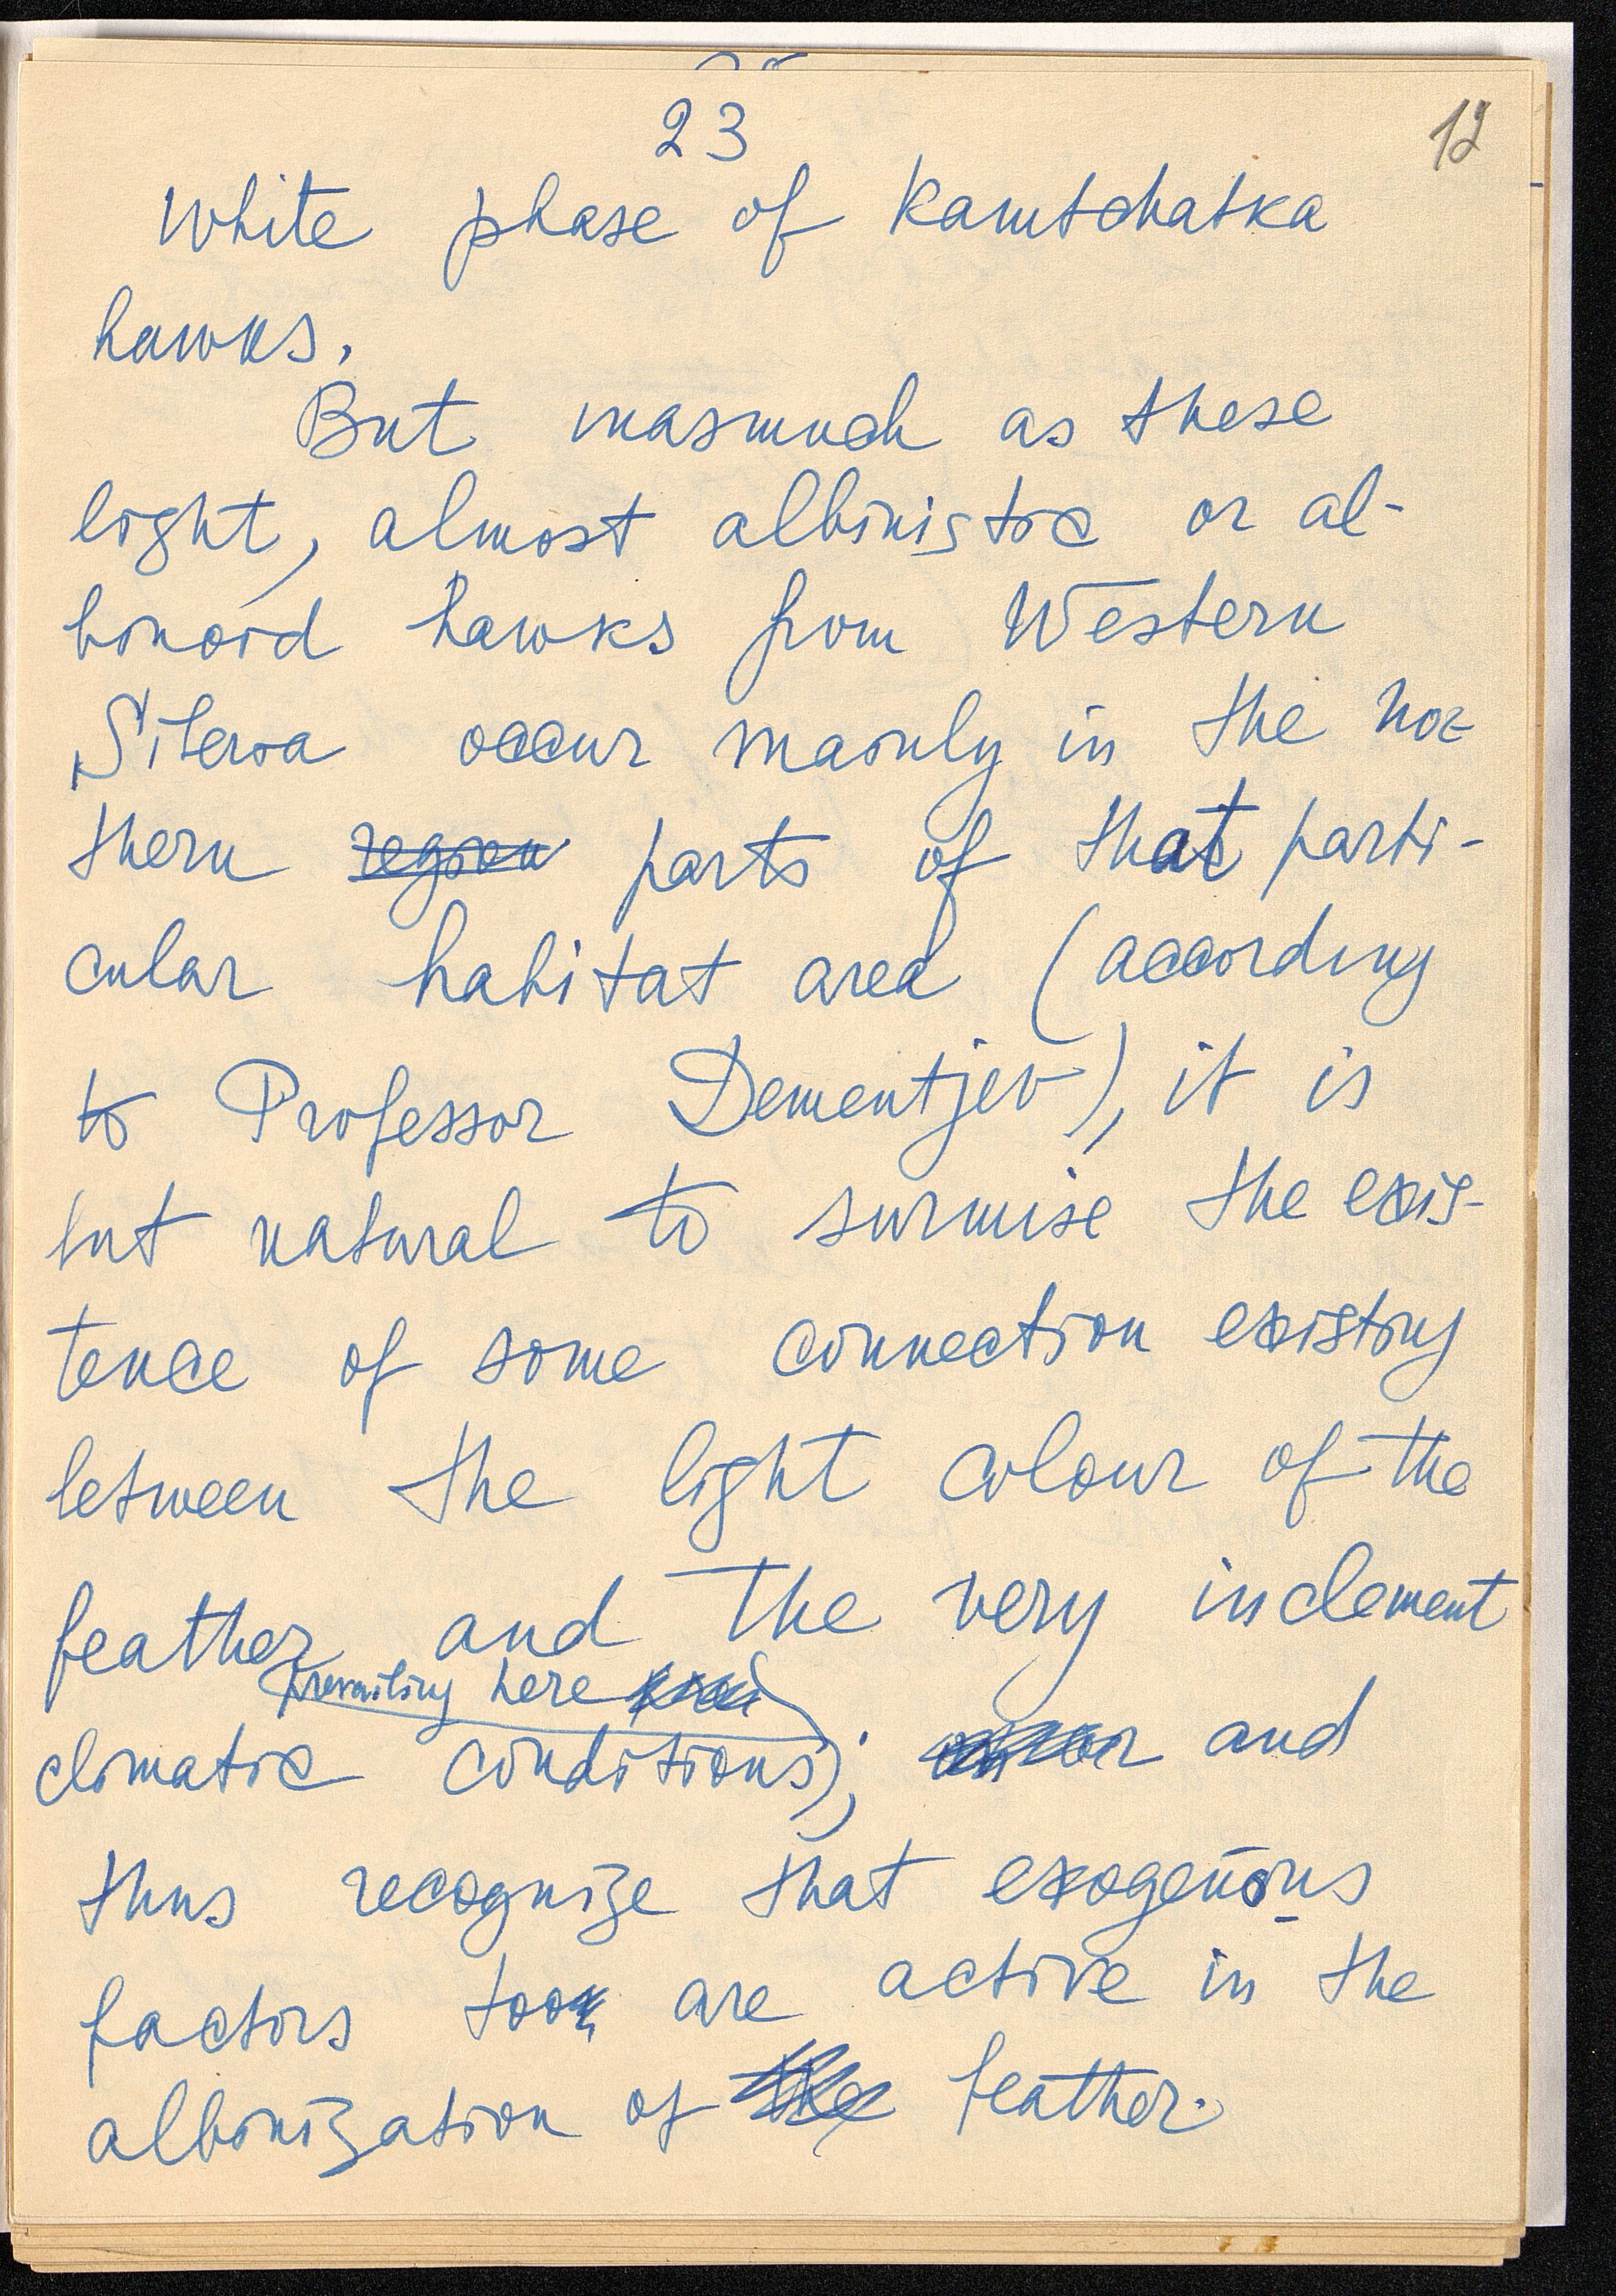 23
12
White phase of Kamtschatka
hawks.
But inasmuch as these
light, almost albinistic or al-
binoid hawks from Western
Siberia occur mainly in the nor-
thern region parts of that parti-
cular habitat area (according
to Professor Dementjev), it is
but natural to surmise the exis-
tence of some connection existing
between the light colour of the
feather and the very inclement
prevailing here
climatic conditions); and
thus recognize that exogenous
factors too are active in the
albinization of the feather.